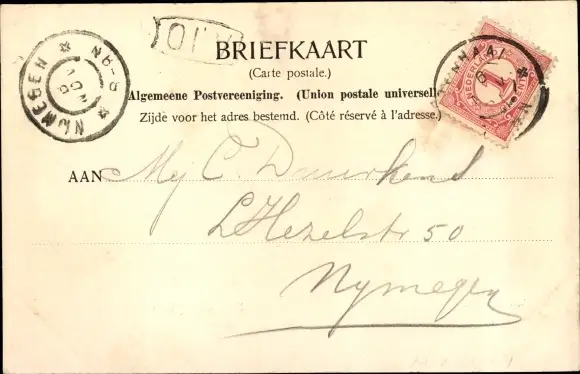 BRIEFKAART
(Carte postale.)
Algemeene Postvereeniging. (Union postale universelle)
Zijde voor het adres bestemd. (Côté réservé à l'adresse.)
AAN Mej C. Duurkens
L Hezelstr 50
Nymegen
NIJMEGEN
NEDERLAND
1